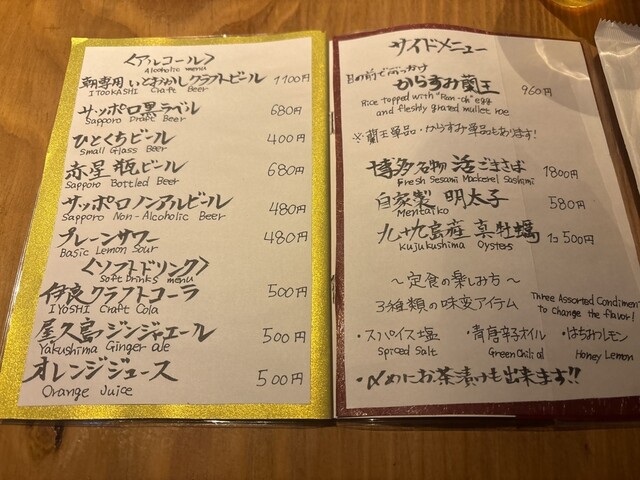 〈アルコール〉
Alcoholic menu
朝専用 いとおかしクラフトビール 1100円
ITOOKASHI Craft Beer
サッポロ黒ラベル 680円
Sapporo Draft Beer
ひとくちビール 400円
Small Glass Beer
赤星 瓶ビール 680円
Sapporo Bottled Beer
サッポロノンアルビール 480円
Sapporo Non-Alcoholic Beer
プレーンサワー 480円
Basic Lemon Sour
〈ソフトドリンク〉
Soft Drinks menu
伊良クラフトコーラ 500円
IYOSHI Craft Cola
屋久島ジンジャエール 500円
Yakushima Ginger ale
オレンジジュース 500円
Orange Juice
サイドメニュー
目の前でぶっかけ
からすみ蘭王 960円
Rice topped with "Ran-oh" egg
and fleshly grated mullet roe
※蘭王単品・からすみ単品もあります!
博多名物 活ごまさば 1800円
Fresh Sesami Mackerel Sashimi
自家製 明太子 580円
Mentaiko
九十九島産 真牡蠣 1コ500円
Kujukushima Oysters
〜定食の楽しみ方〜
3種類の味変アイテム Three Assorted Condiment
to Change the flavor!
・スパイス塩 ・青唐辛子オイル ・はちみつレモン
Spiced Salt Green Chili oil Honey Lemon
・〆めにお茶漬けも出来ます!!